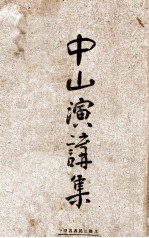 中山演講集